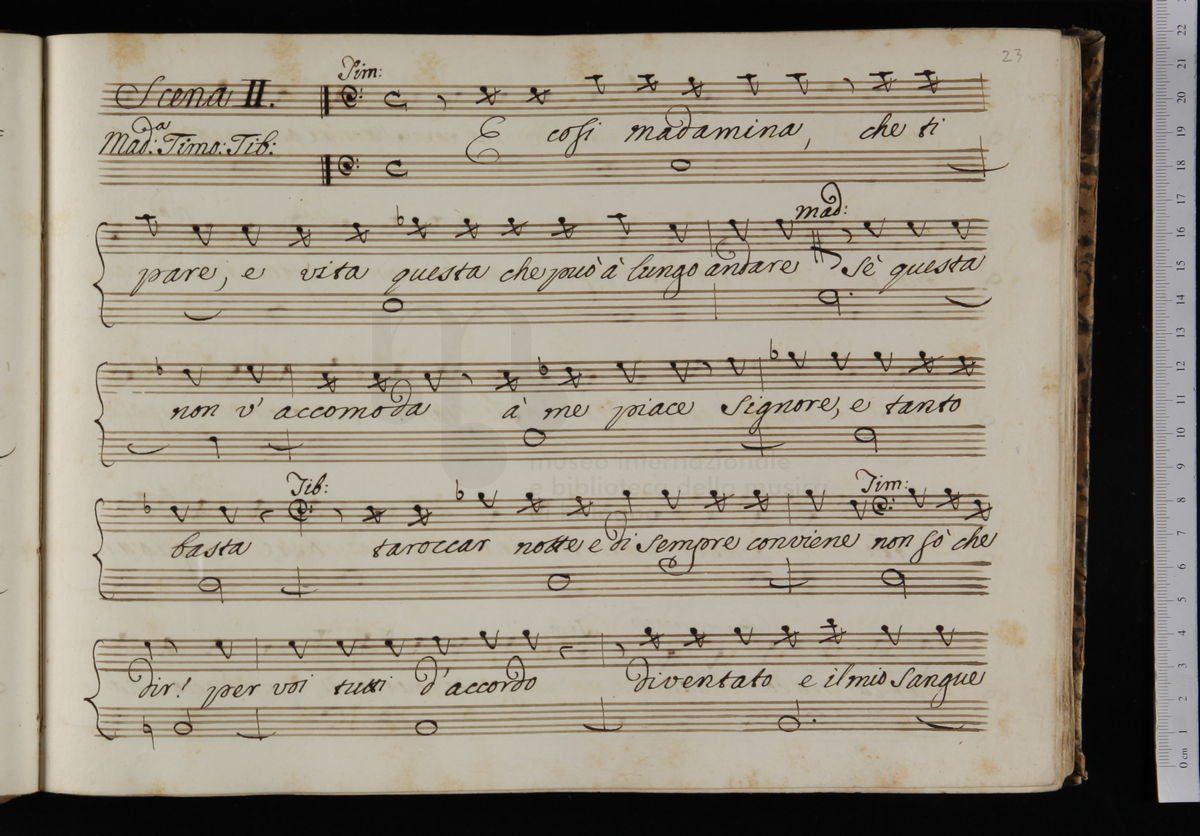 23
Tim:
Scena II.
E cosi madamina, che ti
Mad:a Timo: Tib:
mad:
pare, e vita questa che può à lungo andare Sè questa
non v'accomoda à me piace Signore, e tanto
museo internazionale
e biblioteca della musica
Tib: Tim:
basta taroccar notte e di sempre conviene non sò che
dir! per voi tutti d'accordo diventato e il mio Sangue
0 cm 1 2 3 4 5 6 7 8 9 10 11 12 13 14 15 16 17 18 19 20 21 22